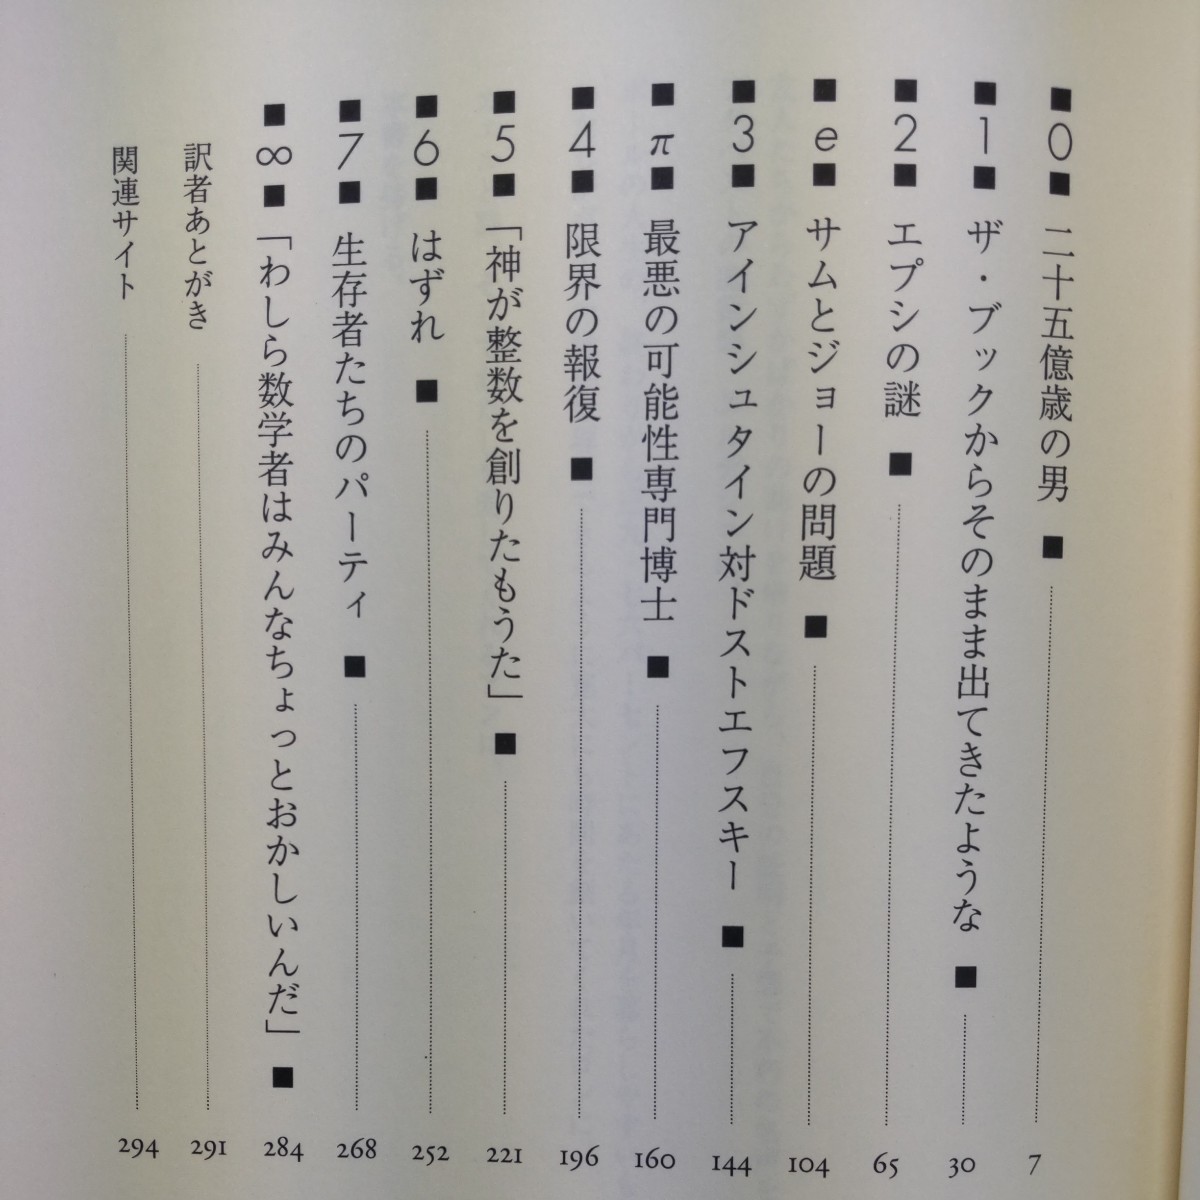 ■0■ 二十五億歳の男 ■ 7
■1■ ザ・ブックからそのまま出てきたような ■ 30
■2■ エプシの謎 ■ 65
■e■ サムとジョーの問題 ■ 104
■3■ アインシュタイン対ドストエフスキー ■ 144
■π■ 最悪の可能性専門博士 ■ 160
■4■ 限界の報復 ■ 196
■5■ 「神が整数を創りたもうた」 ■ 221
■6■ はずれ ■ 252
■7■ 生存者たちのパーティ ■ 268
■∞■ 「わしら数学者はみんなちょっとおかしいんだ」 ■ 284
訳者あとがき 291
関連サイト 294